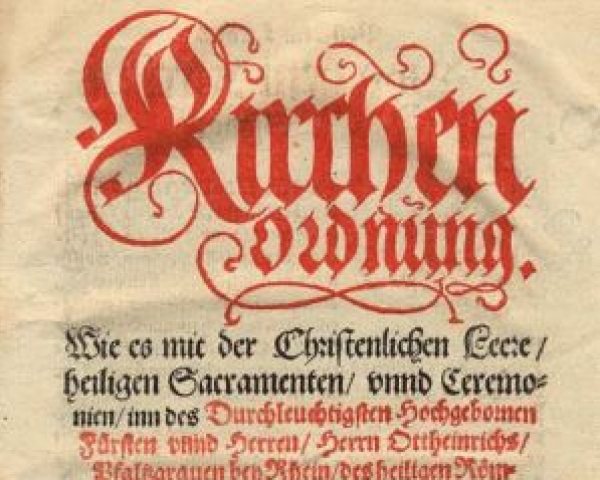 Kirchen
ordnung.
Wie es mit der Christenlichen Leere/
heiligen Sacramenten/ vnnd Ceremo-
nien/ inn des Durchleuchtigsten Hochgebornen
Fürsten vnnd Herren/ Herrn Ottheinrichs/
Pfaltzgrauen bey Rhein/ des heiligen Röm-